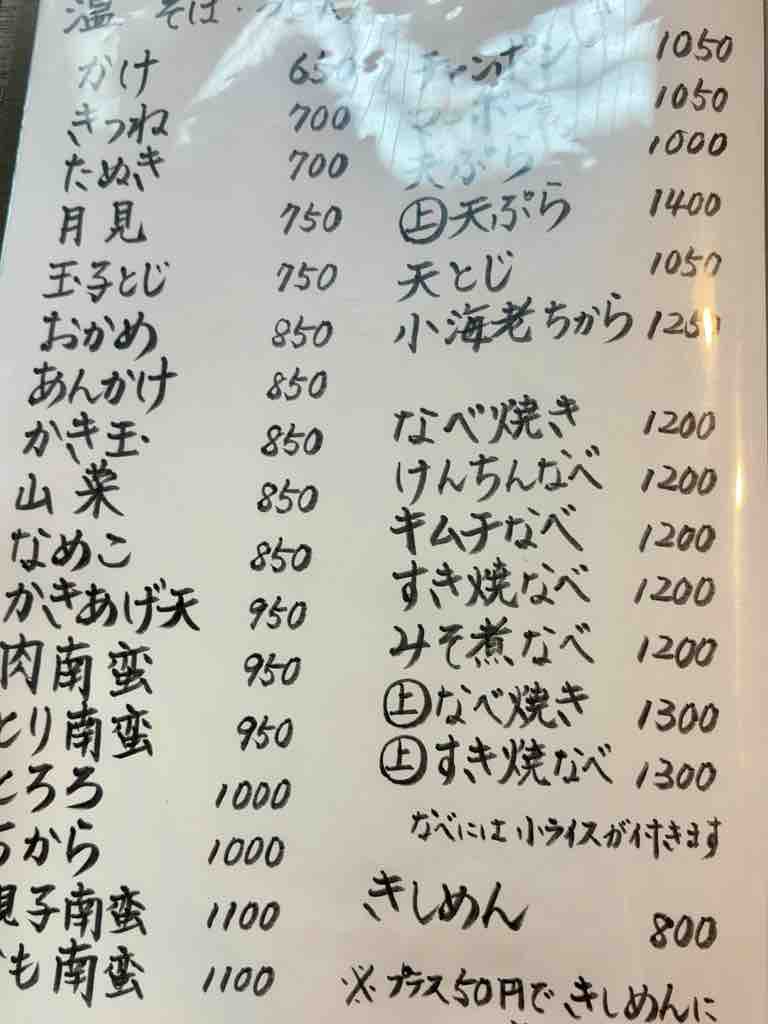 温 そば・うどん
かけ 650
きつね 700
たぬき 700
月見 750
玉子とじ 750
おかめ 850
あんかけ 850
かき玉 850
山菜 850
なめこ 850
かきあげ天 950
肉南蛮 950
とり南蛮 950
とろろ 1000
ちから 1000
親子南蛮 1100
も南蛮 1100
チャンポン 1050
1050
天ぷら 1000
㊤天ぷら 1400
天とじ 1050
小海老ちから 1250
なべ焼き 1200
けんちんなべ 1200
キムチなべ 1200
すき焼なべ 1200
みそ煮なべ 1200
㊤なべ焼き 1300
㊤すき焼なべ 1300
なべには小ライスが付きます
きしめん 800
※プラス50円できしめんに